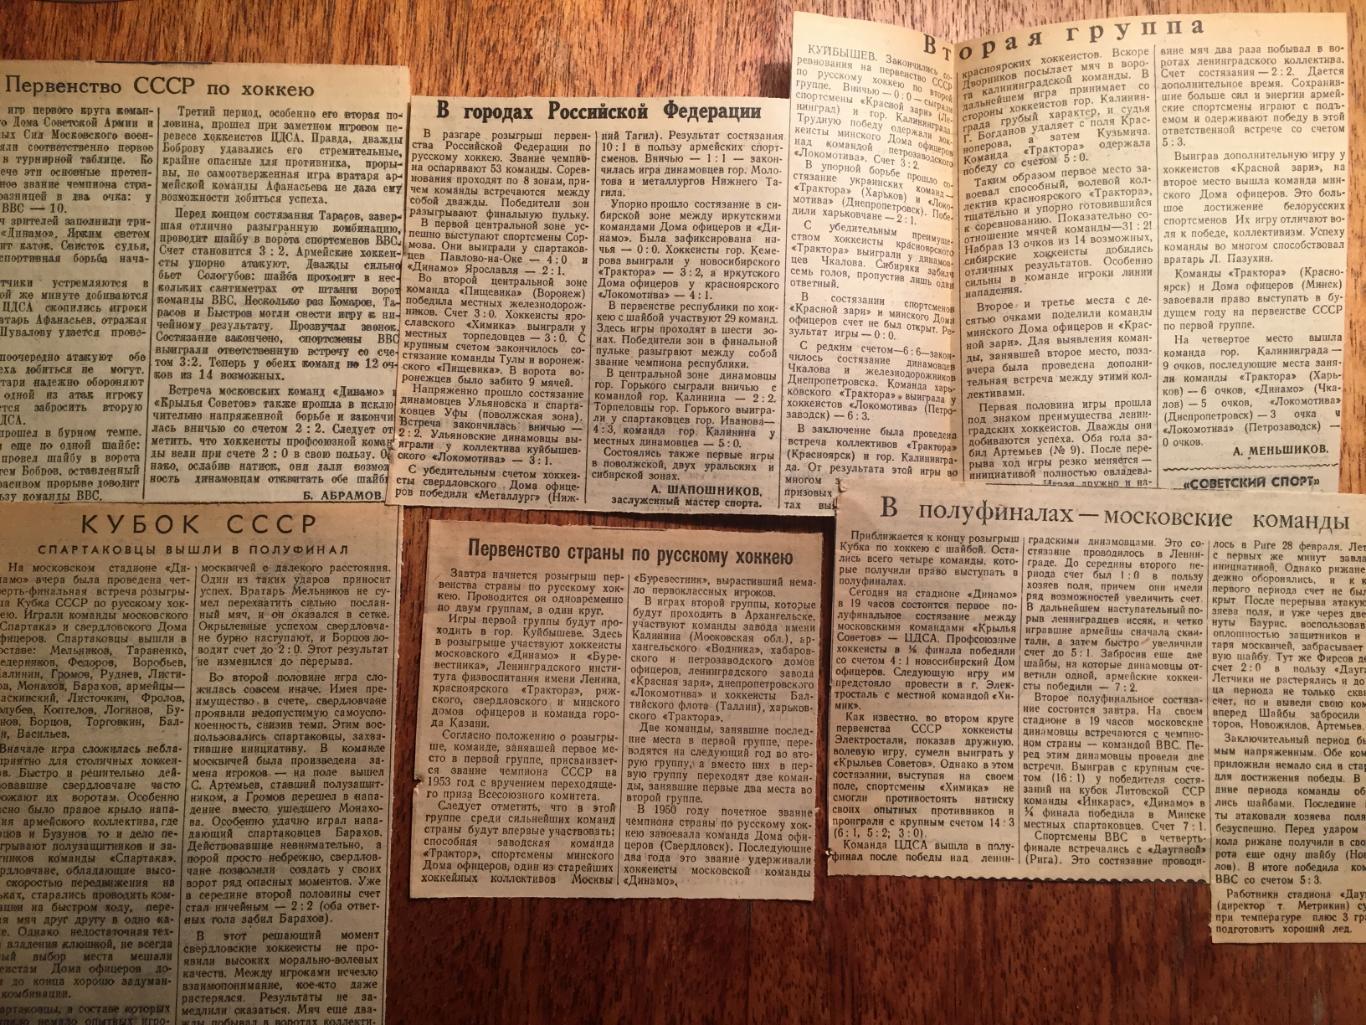 Первенство СССР по хоккею
игр первого круга коман-
Дома Советской Армии и
ных Сил Московского воен-
яли соответственно первое
в турнирной таблице. Бо
ече эти основные претен-
ное звание чемпиона стра-
разницей в два очка: у
ВВС — 10.
ч зрителей заполнили три-
«Динамо». Ярким светом
ит каток. Свисток судьи,
спортивная борьба нача-
тчики устремляются в
ой же минуте добиваются
ЦДСА скопились игроки
атарь Афанасьев, отражая
Шувалову удается прове-
поочередно атакуют обе
еха добиться не могут.
атари надежно обороняют
одной из атак игроку
ается забросить вторую
ДСА.
рошел в бурном темпе.
еще по одной шайбе:
провел шайбу в ворота
тем Бобров, оставленный
расивом прорыве доводит
ьзу команды ВВС.
Третий период, особенно его вторая по-
ловина, прошел при заметном игровом пе-
ревесе хоккеистов ЦДСА. Правда, дважды
Боброву удавались его стремительные,
крайне опасные для противника, проры-
вы, но самоотверженная игра вратаря ар-
мейской команды Афанасьева не дала ему
возможности добиться успеха.
Перед концом состязания Тарасов, завер-
шая отлично разыгранную комбинацию,
проводит шайбу в ворота спортсменов ВВС.
Счет становится 3:2. Армейские хоккеи-
сты упорно атакуют. Дважды сильно
бьет Сологубов: шайба проходит в не-
скольких сантиметрах от штанги ворот
команды ВВС. Несколько раз Комаров, Та-
расов и Быстров могли свести игру к ни-
чейному результату. Прозвучал звонок.
Состязание закончено, спортсмены ВВС
выиграли ответственную встречу со сче-
том 3:2. Теперь у обеих команд по 12 оч-
ков из 14 возможных.
Встреча московских команд «Динамо» и
«Крылья Советов» также прошла в исклю-
чительно напряженной борьбе и закончи-
лась вничью со счетом 2:2. Следует от-
метить, что хоккеисты профсоюзной коман-
ды вели при счете 2:0 в свою пользу. Од-
нако, ослабив натиск, они дали возмож-
ность динамовцам отквитать обе шайбы.
Б. АБРАМОВ.
В городах Российской Федерации
В разгаре розыгрыш первен-
ства Российской Федерации по
русскому хоккею. Звание чемпио-
на оспаривают 53 команды. Сорев-
нования проходят по 8 зонам, при-
чем команды встречаются между
собой дважды. Победители зон
разыгрывают финальную пульку.
В первой центральной зоне ус-
пешно выступают спортсмены Сор-
мова. Они выиграли у спартаков-
цев Павлово-на-Оке — 4:0 и
«Динамо» Ярославля — 2:1.
Во второй центральной зоне
команда «Пищевик» (Воронеж)
победила местных железнодорож-
ников. Счет 3:0. Хоккеисты яро-
славского «Химика» выиграли у
местных торпедовцев — 3:0. С
крупным счетом закончилось со-
стязание команды Тулы и воронеж-
ского «Пищевика». В ворота во-
ронежцев было забито 9 мячей.
Напряженно прошло состязание
динамовцев Ульяновска и спарта-
ковцев Уфы (поволжская зона).
Встреча закончилась вничью —
2:2. Ульяновские динамовцы вы-
играли у коллектива куйбышев-
ского «Локомотива» — 3:1.
С убедительным счетом хоккеи-
сты свердловского Дома офице-
ров победили «Металлург» (Ниж-
ний Тагил). Результат состязания
10:1 в пользу армейских спорт-
сменов. Вничью — 1:1 — закон-
чилась игра динамовцев гор. Мо-
лотова и металлургов Нижнего Та-
гила.
Упорно прошло состязание в си-
бирской зоне между иркутскими
командами Дома офицеров и «Ди-
намо». Была зафиксирована ни-
чья — 0:0. Хоккеисты гор. Кеме-
рова выиграли у новосибирского
«Трактора» — 3:2, а иркутского
Дома офицеров у красноярского
«Локомотива» — 4:1.
В первенстве республики по хок-
кею с шайбой участвуют 29 команд.
Здесь игры проходят в шести зо-
нах. Победители зон в финальной
пульке разыграют между собой
звание чемпиона республики.
В центральной зоне динамовцы
гор. Горького сыграли вничью с
командой гор. Калинина — 2:2.
Торпедовцы гор. Горького выигра-
ли у спартаковцев гор. Иванова—
4:3, команда гор. Калинина у
местных динамовцев — 5:0.
Состоялись также первые игры
в поволжской, двух уральских и
сибирской зонах.
А. ШАПОШНИКОВ,
заслуженный мастер спорта.
Вторая группа
КУЙБЫШЕВ. Закончились со-
ревнования на первенство СССР
по русскому хоккею по второй
группе. Вничью — 0:0—сыграли
спортсмены «Красной зари» (Ле-
нинград) и гор. Калининграда.
Трудную победу одержали хок-
кеисты минского Дома офицеров
над командой петрозаводского
«Локомотива». Счет 3:2.
В упорной борьбе прошло со-
стязание украинских команд —
«Трактора» (Харьков) и «Локо-
мотива» (Днепропетровск). Побе-
дили харьковчане — 2:1.
С убедительным преимуще-
ством хоккеисты красноярского
«Трактора» выиграли у динамов-
цев Чкалова. Сибиряки забили
семь голов, пропустив лишь один
ответный.
В состязании спортсменов
«Красной зари» и минского Дома
офицеров счет не был открыт. Ре-
зультат игры — 0:0.
С редким счетом—6:6—закон-
чилось состязание динамовцев
Чкалова и железнодорожников
Днепропетровска. Команда харь-
ковского «Трактора» выиграла у
хоккеистов «Локомотива» (Петро-
заводск) — 6:3.
В заключение была проведена
встреча коллективов «Трактора»
(Красноярск) и гор. Калинингра-
да. От результата этой игры во
многом з
призовых
тах вы
красноярских хоккеистов. Вскоре
Дворников посылает мяч в воро-
та калининградской команды. В
дальнейшем игра принимает со
стороны хоккеистов гор. Калинин-
града грубый характер, и судья
Г. Богданов удаляет с поля Крас-
ноперова, а затем Кузьмича.
Команда «Трактора» одержала
победу со счетом 5:0.
Таким образом первое место за-
воевал способный, волевой кол-
лектив красноярского «Трактора»,
тщательно и упорно готовившийся
к соревнованию. Показательно со-
отношение мячей команды—31:21
Набрав 13 очков из 14 возможных,
сибирские хоккеисты добились
отличных результатов. Особенно
сильна в команде игроки линии
нападения.
Второе и третье места с де-
сятью очками поделили команды
минского Дома офицеров и «Крас-
ной зари». Для выявления коман-
ды, занявшей второе место, вче-
ра была проведена дополнитель-
ная встреча между этими кол-
лективами.
Первая половина игры прошла
под знаком преимущества ленин-
градских хоккеистов. Дважды они
добиваются успеха. Оба гола за-
бил Артемьев (№ 9). После пере-
рыва ход игры резко меняется —
инициативой полностью овладева-
ют Играя дружно и на-
вине мяч два раза побывал в во-
ротах ленинградского коллектива.
Счет состязания — 2:2. Дается
дополнительное время. Сохранив-
шие больше сил и энергии армей-
ские спортсмены играют с подъ-
емом и одерживают победу в этой
ответственной встрече со счетом
5:3.
Выиграв дополнительную игру у
хоккеистов «Красной зари», на
второе место вышла команда мин-
ского Дома офицеров. Это боль-
шое достижение белорусских
спортсменов Их игру отличают во-
ля к победе, коллективизм. Успеху
команды во многом способствовал
вратарь Л. Пазухин.
Команды «Трактора» (Красно-
ярск) и Дома офицеров (Минск)
завоевали право выступать в бу-
дущем году на первенстве СССР
по первой группе.
На четвертое место вышла
команда гор. Калининграда —
9 очков, последующие места за-
няли команды «Трактора» (Харь-
ков)—6 очков, «Динамо» (Чка-
лов) — 5 очков, «Локомотива»
(Днепропетровск) — 3 очка и
«Локомотива» (Петрозаводск) —
0 очков.
А. МЕНЬШИКОВ.
«СОВЕТСКИЙ СПОРТ»
КУБОК СССР
СПАРТАКОВЦЫ ВЫШЛИ В ПОЛУФИНАЛ
На московском стадионе «Ди-
намо» вчера была проведена чет-
верть-финальная встреча розыгры-
ша Кубка СССР по русскому хок-
кею. Играли команды московского
«Спартака» и свердловского Дома
офицеров. Спартаковцы вышли в
составе: Мельников, Тараненко,
Ведерников, Федоров, Воробьев,
Калинин, Громов, Руднев, Листи-
ков, Монахов, Барахов, армейцы—
Красинский, Листочкин, Фролов,
Голубев, Коптелов, Логинов, Бу-
зунов, Борцов, Торговкин, Бал-
ин, Васильев.
Вначале игра сложилась небла-
гоприятно для столичных хоккеи-
стов. Быстро и решительно дей-
ствовавшие свердловчане часто
угрожают их воротам. Особенно
опасно было правое крыло напа-
дения армейского коллектива, где
Борцов и Бузунов то и дело пе-
реигрывают полузащитников и за-
щитников команды «Спартака».
Свердловчане, обладающие высо-
кой скоростью передвижения на
коньках, старались проводить ком-
бинации на быстром ходу, перед-
авая мяч друг другу в одно ка-
сание. Однако недостаточная тех-
ника владения клюшкой, не всегда
верный выбор места мешали
хоккеистам Дома офицеров до-
водить до конца хорошо задуман-
ные комбинации.
Спартаковцы, в составе которых
было немало опытных игро-
москвичей с далекого расстояния.
Один из таких ударов приносит
успех. Вратарь Мельников не су-
мел перехватить сильно послан-
ный мяч, и он оказался в сетке.
Окрыленные успехом свердловча-
не бурно наступают, и Борцов до-
водит счет до 2:0. Этот результат
не изменился до перерыва.
Во второй половине игра сло-
жилась совсем иначе. Имея пре-
имущество в счете, свердловчане
проявили недопустимую самоуспо-
коенность, снизив темп. Этим вос-
пользовались спартаковцы, захва-
тившие инициативу. В команде
москвичей была произведена за-
мена игроков — на поле вышел
С. Артемьев, ставший полузащит-
ником, а Громов перешел в напа-
дение вместо ушедшего Монахо-
ва. Особенно удачно играл напа-
дающий спартаковцев Барахов.
Действовавшие невнимательно, а
порой просто небрежно, свердлов-
чане позволили создать у своих
ворот ряд опасных моментов. Уже
в середине второй половины счет
стал ничейным — 2:2 (оба от-
ветных гола забил Барахов).
В этот решающий момент
свердловские хоккеисты не про-
явили высоких морально-волевых
качеств. Между игроками исчезло
взаимопонимание, кое-кто даже
растерялся. Результаты не за-
медлили сказаться. Мяч еще два-
жды побывал в воротах коллекти-
Первенство страны по русскому хоккею
Завтра начнется розыгрыш пер-
венства страны по русскому хок-
кею. Проводится он одновременно
по двум группам, в один круг.
Игры первой группы будут про-
ходить в гор. Куйбышеве. Здесь в
розыгрыше участвуют хоккеисты
московского «Динамо» и «Буре-
вестника», Ленинградского инсти-
тута физвоспитания имени Ленина,
красноярского «Трактора», риж-
ского, свердловского и минского
домов офицеров и команда горо-
да Казани.
Согласно положению о розыгры-
ше, команде, занявшей первое ме-
сто в первой группе, присваивает-
ся звание чемпиона СССР на
1953 год с вручением переходяще-
го приза Всесоюзного комитета.
Следует отметить, что в этой
группе среди сильнейших команд
страны будут впервые участвовать:
способная заводская команда
«Трактор», спортсмены минского
Дома офицеров, один из старейших
хоккейных коллективов Москвы
«Буревестник», вырастивший нема-
ло первоклассных игроков.
В играх второй группы, которые
будут проходить в Архангельске,
участвуют команды завода имени
Калинина (Московская обл.), ар-
хангельского «Водника», хабаров-
ского и петрозаводского домов
офицеров, ленинградского завода
«Красная заря», днепропетровского
«Локомотива» и хоккеисты Бал-
тийского флота (Таллин), харьков-
ского «Трактора».
Две команды, занявшие послед-
ние места в первой группе, пере-
водятся на следующий год во вто-
рую группу, а вместо них в пер-
вую группу переходят две коман-
ды, занявшие первые два места во
второй группе.
В 1950 году почетное звание
чемпиона страны по русскому хок-
кею завоевала команда Дома офи-
церов (Свердловск). Последующие
два года это звание удерживали
хоккеисты московской команды
«Динамо».
В полуфиналах — московские команды
Приближается к концу розыгрыш
Кубка по хоккею с шайбой. Оста-
лись всего четыре команды, кото-
рые получили право выступать в
полуфиналах.
Сегодня на стадионе «Динамо»
в 19 часов состоится первое по-
луфинальное состязание между
московскими командами «Крылья
Советов» — ЦДСА. Профсоюзные
хоккеисты в ⅛ финала победили
со счетом 4:1 новосибирский Дом
офицеров. Следующую игру им
предстояло провести в г. Элек-
тросталь с местной командой «Хи-
мик».
Как известно, во втором круге
первенства СССР хоккеисты
Электростали, показав дружную,
волевую игру, сумели выиграть у
«Крыльев Советов». Однако в этом
состязании, выступая на своем
поле, спортсмены «Химика» не
смогли противостоять натиску
своих опытных противников и
проиграли с крупным счетом 14:3
(6:1, 5:2; 3:0).
Команда ЦДСА вышла в полу-
финал после победы над ленин-
градскими динамовцами. Это со-
стязание проводилось в Ленин-
граде. До середины второго пе-
риода счет был 1:0 в пользу
хозяев поля, причем они имели
ряд возможностей увеличить счет.
В дальнейшем наступательный по-
рыв ленинградцев иссяк, и четко
игравшие армейцы сначала скви-
тали, а затем быстро увеличили
счет до 5:1. Забросив еще две
шайбы, на которые динамовцы от-
ветили одной, армейские хоккеи-
сты победили — 7:2.
Второе полуфинальное состяза-
ние состоится завтра. На своем
стадионе в 19 часов московские
динамовцы встречаются с чемпио-
ном страны — командой ВВС. Пе-
ред этим динамовцы провели две
встречи. Выиграв с крупным сче-
том (16:1) у победителя состя-
заний на кубок Литовской ССР
команды «Инкарас», «Динамо» в
¼ финала победило в Минске
местных спартаковцев. Счет 7:1.
Спортсмены ВВС в четверть-
финале встречались с «Даугавой»
(Рига). Это состязание проводи-
лось в Риге 28 февраля. Лет-
с первых же минут завла-
инициативой. Однако рижане
дежно оборонялись, и к к
первого периода счет не бы
крыт. После перерыва атакую
зяева поля, и уже через две
нуты Баурис, воспользовав
оплошностью защитников и
таря москвичей, забрасывает
вую шайбу. Тут же Фирсов де
счет 2:0 в пользу «Дауг
Летчики не растерялись и до
ца периода не только скви
счет, но и вывели свою ком
вперед Шайбы забросили
торов, Новожилов, Артемьев.
Заключительный период бы
мым напряженным. Обе ком
приложили немало сил и стара
для достижения победы. В
дине периода команды обм
лись шайбами. Последние
ты атаковали хозяева поля
безуспешно. Перед ударом
кола рижане получили в сво
рота еще одну шайбу (Ново
лов). В итоге победила ком
ВВС со счетом 5:3.
Работники стадиона «Дау
(директор т. Метрикин) су
при температуре плюс 3 гра
подготовить хороший лед.